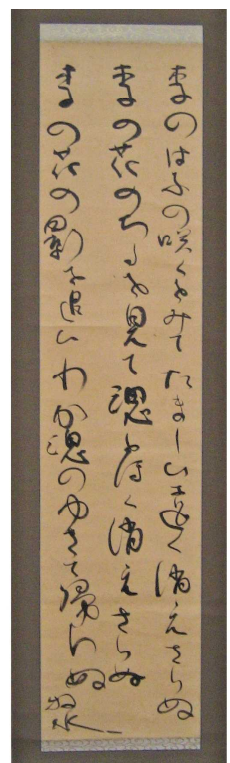 李のはなの咲くをみてたましひ遠く消えさらぬ
李の花のちるを見て魂遠く消えさらぬ
李の花の影を追ひわか魂のゆきて帰らぬ